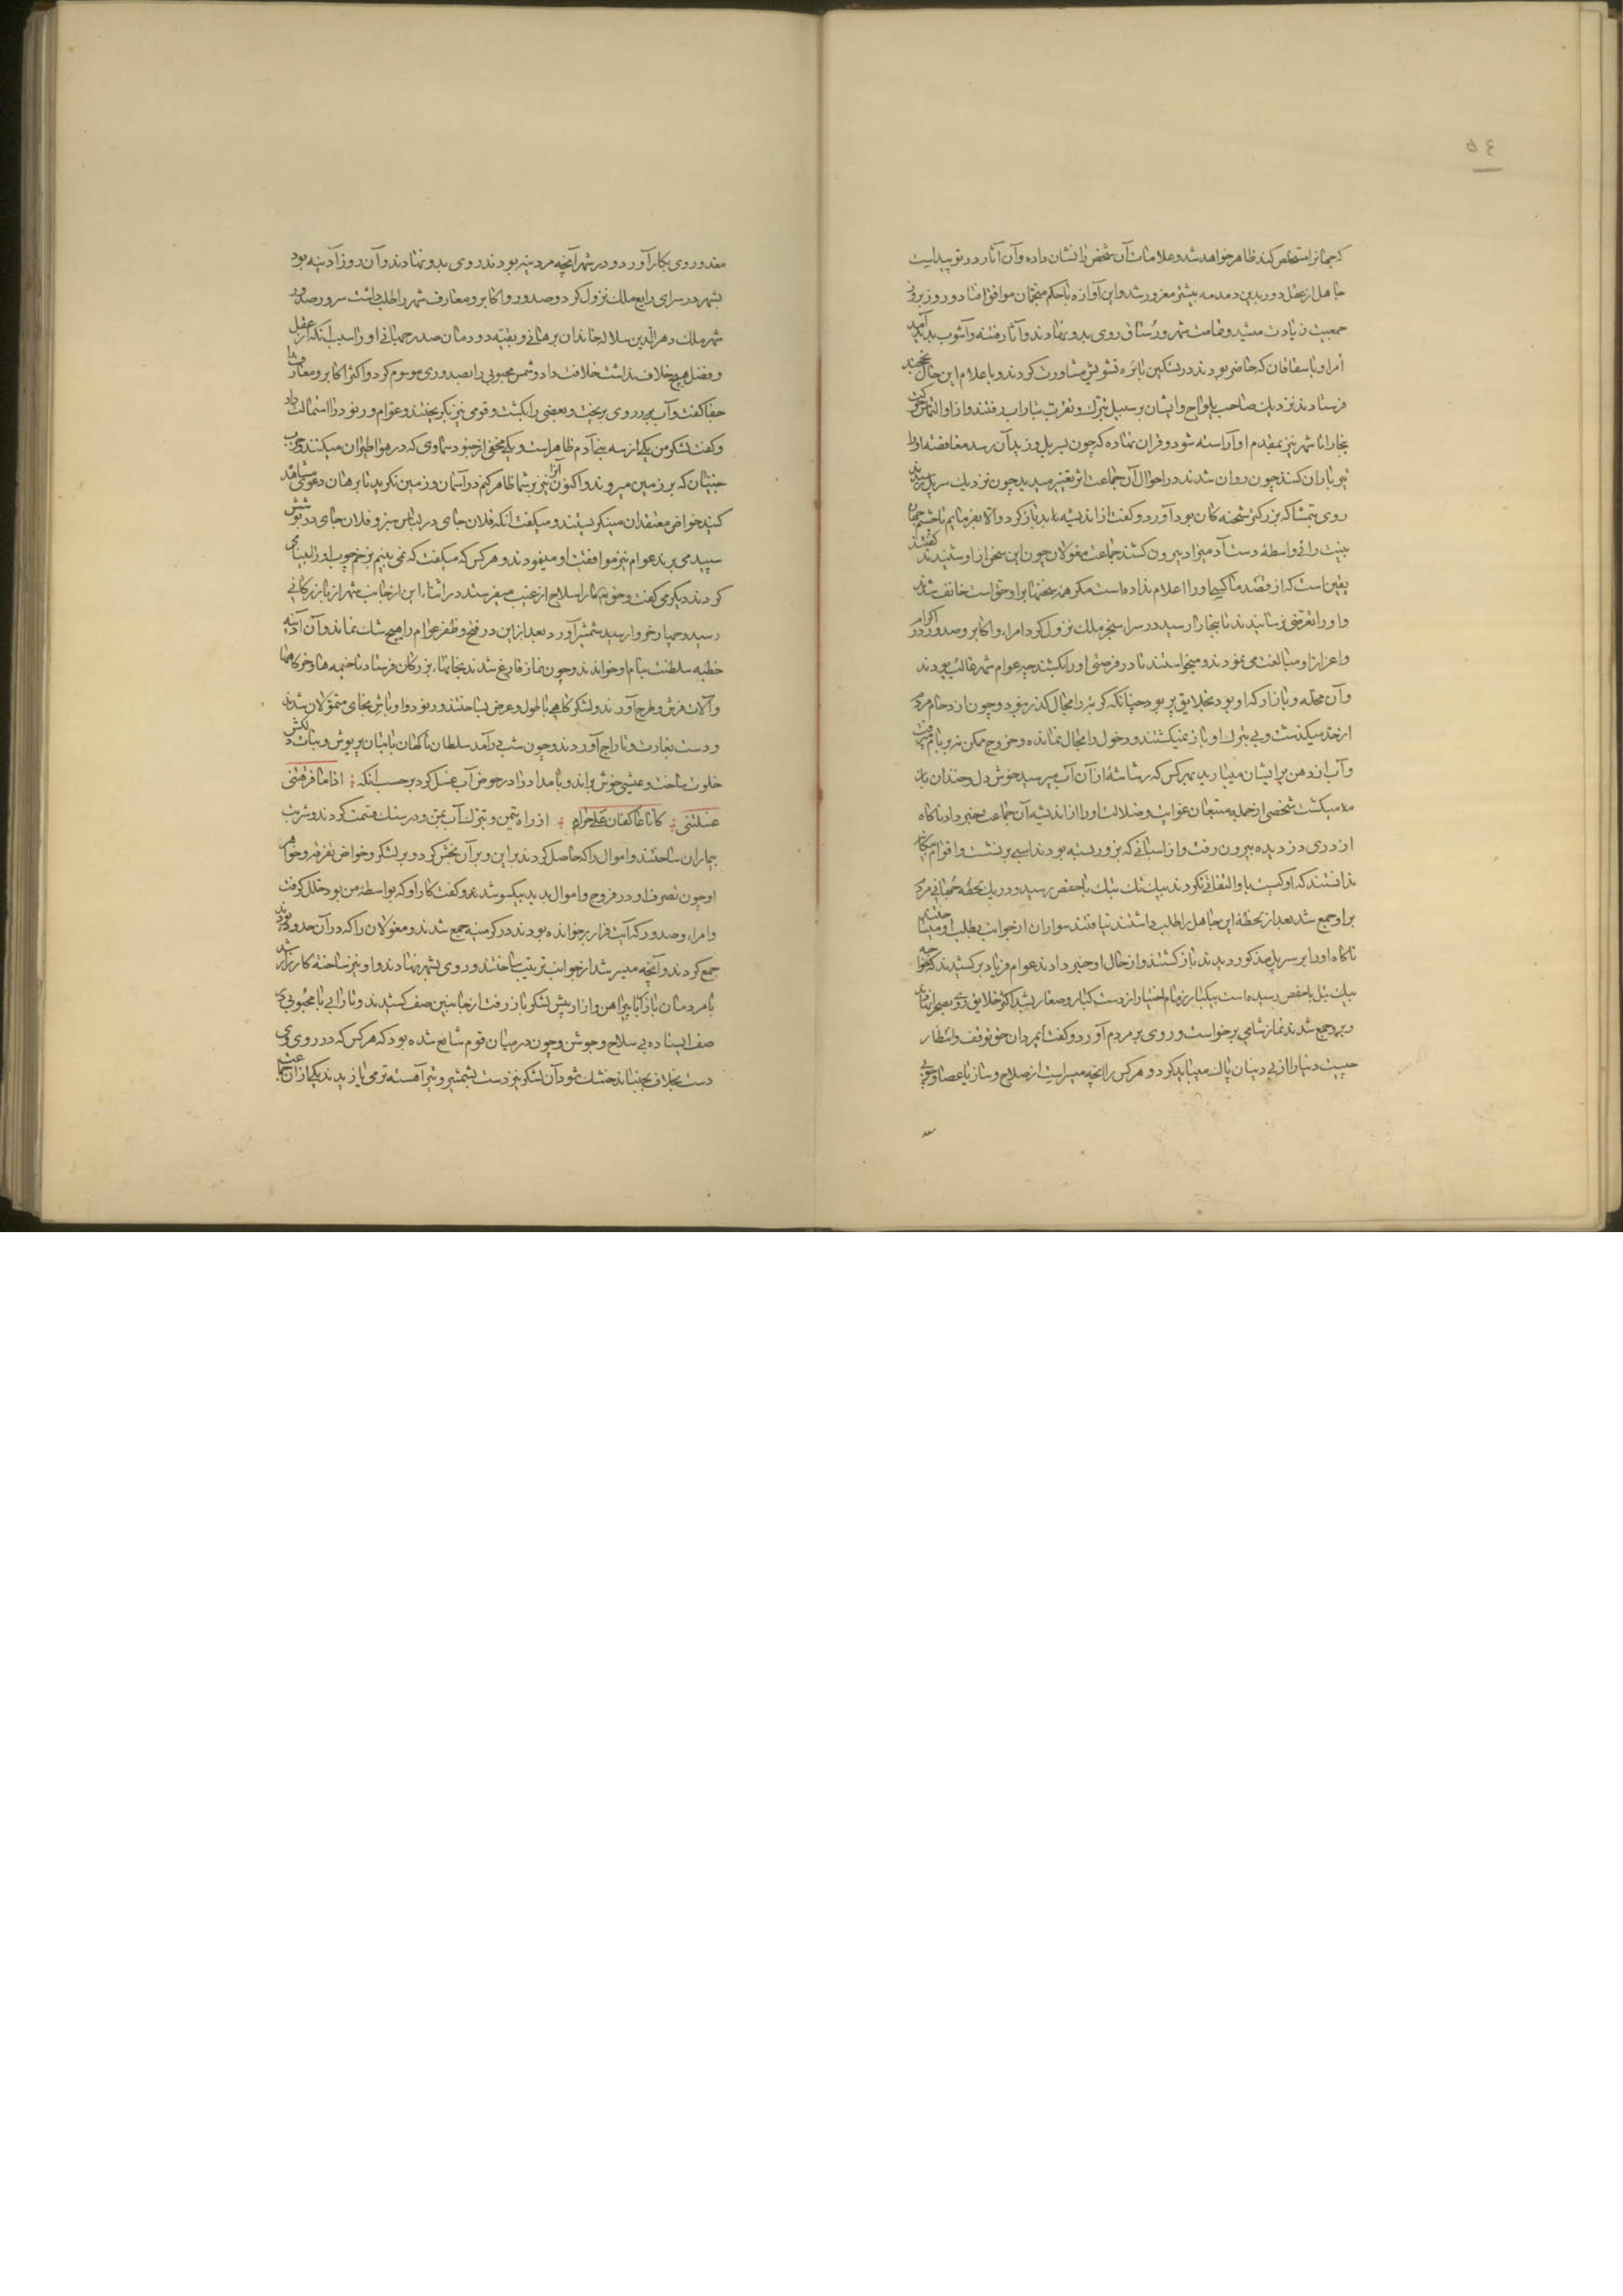 ٤٥
که جهانرا مستخلص کند ظاهر خواهد شد و علامات آن شخص را نشان داده و آن آثار در تو پیداست
جاهل از عقل دور بدین دمدمه بیشتر مغرور شد و این آوازه با حکم منجمان موافق افتاد و روز بروز
جمعیت زیادت میشد و تمامت شهر و رستاق روی بدو نهادند و آثار فتنه و آشوب پدید آمد
امرا و باسقاقان که حاضر بودند در تسکین نائره تشویش مشاورت کردند و باعلام این حال بخجند
فرستادند نزدیک صاحب یلواج و ایشان بر سبیل تبرک و تقرب بتاراب رفتند و ازو التماس حرکت
بخارا تا شهر نیز بمقدم او آراسته شود و قرار نهاده که چون بسر پل وزیدان رسد مغافصة او را
تیرباران کنند چون روان شدند در احوال آن جماعت اثر تغیر میدید چون نزدیک سر پل رسیدند
روی بتمشا که بزرگتر شحنه کان بود آورد و گفت از اندیشه بد باز گرد و الا بفرمایم تا چشم جهان
بینت را بی واسطهٔ دست آدمیزاد بیرون کشند جماعت مغولان چون این سخن ازو شنیدند گفتند
یقین است که از قصد ما کسی او را اعلام نداده است مگر همه سخنها برو حق است خائف شدند
و او را تعرضی نرسانیدند تا ببخارا رسید در سرا سنجر ملک نزول کرد امرا و اکابر و صدور در اکرام
و اعزاز او مبالغت می نمودند و میخواستند تا در فرصتی او را بکشند چه عوام شهر غالب بودند
و آن محله و بازار که او بود بخلایق پر بود چنانکه گربه را مجال گذر نبود و چون ازدحام مردم
از حد میگذشت و بی تبرک او باز نمیگشتند و دخول را مجال نمانده و خروج ممکن نه بر بام میرفت
و آب از دهن برایشان میبارید بهر کس که رشاشهٔ از آن آب میرسید خوش دل و خندان باز
میگشت شخصی از جملهٔ متبعان غوایت و ضلالت او را از اندیشه آن جماعت خبر داد ناگاه
از دری دزدیده بیرون رفت و از اسبانی که بر در بسته بودند اسبی برنشست و اقوام بیگانه
ندانستند که او کیست باو التفاتی نکردند بیک تک بتل باحفص رسید و در یک لحظه جهانی مردم
برو جمع شد بعد از لحظهٔ این جاهل را طلب داشتند نیافتند سواران از جوانب بطلب او میتاختند
ناگاه او را بر سر پل مذکور دیدند بازگشتند و از حال او خبر دادند عوام فریاد برکشیدند که خواجه
بیک تل باحفص رسیده است بیکبار زمام اختیار از دست کبار و صغار بشد اکثر خلایق روی بصحرا نهادند
و برو جمع شدند نماز شامی برخواست و روی بر مردم آورد و گفت ای مردان حق توقف و انتظار
چیست دنیا را از بی دینان پاک میباید کرد و هر کس را آنچه میسر است از سلاح و ساز یا عصا و چوبی
معد و روی بکار آورد و در شهر آنچه مردینه بودند روی بدو نهادند و آن روز آدینه بود
بشهر در سرای رابع ملک نزول کرد و صدور و اکابر و معارف شهر را طلب داشت سرور صدور
شهر ملک دهر برهان الدین سلاله خاندان برهانی و بقیه دودمان صدر جهانی او را سبب آنکه از عقل
و فضل هیچ خلاف نداشت خلافت داد و شمس محبوبی را بصدوری موسوم کرد و اکثر اکابر و معارف را
جفا گفت و آب روی بریخت و بعضی را بکشت و قومی نیز بگریختند و عوام و رنود را استمالت داد
و گفت لشکر من یکی از سه بنی آدم ظاهر است و یکی مخفی از جنود سماوی که در هوا طیران میکنند و حزب
جنیان که بر زمین میروند و اکنون آنرا نیز بر شما ظاهر کنم در آسمان و زمین نگرید تا برهان دعوی مشاهده
کنید خواص معتقدان مینگریستند و میگفت آنک فلان جای در لباس سبز و فلان جای در پوشش
سپید می پرند عوام نیز موافقت او مینمودند و هر کس که میگفت که نمی بینم بزخم چوب او را بینا می
کردند دیگر می گفت و حق ما را سلاح از غیب میفرستد در اثناء این از جانب شهر از باز رگانی
رسید و چهار خروار رسید شمشیر آورد بعد ازین در فتح و ظفر عوام را هیچ شک نماند و آن آدینه
خطبه سلطنت بنام او خواندند و چون نماز فارغ شدند بخانهاء بزرگان فرستاد تا خیمه ها و خرگاهها
و آلات فرش و طرح آوردند و لشکرگاهی باطول و عرض بساختند و رنود و اوباش بجای متمولان شدند
و دست بغارت و تاراج آوردند و چون شب درآمد سلطان ناگهان با بتان پریوش و بنات دلکش
خلوت ساخت و عیشی خوش براند و بامداد را در حوض آب غسل کرد بر حسب آنکه : اذا ما فارقتنی
غسلتنی : کانا عاکفان علی حرام : از راه تیمن و تبرک آب بمن و درمسنگ قسمت کردند و شربت
بیماران ساختند و اموال را که حاصل کردند برین و بر آن بخش کرد و بر لشکر و خواص تفرقه و خواهر
او چون تصرف او در فروج و اموال بدید بیکسو شد و گفت کار او که بواسطهٔ من بود خلل گرفت
و امرا و صدور که آیت فرار برخوانده بودند در کرمینه جمع شدند و مغولان را که در آن حدود بودند
جمع کردند و آنچه میسر شد از جوانب ترتیب ساختند و روی بشهر نهادند و او نیز ساخته کارزار شد
با مردمان بازار با پیراهن و ازار پیش لشکر باز رفت از جانبین صف کشیدند و تارابی با محبوبی در
صف ایستاده بی سلاح و جوشن و چون در میان قوم شایع شده بود که هر کس که در روی وی
دست بخلاف بجنباند خشک شود آن لشکر نیز دست بشمشیر و تیر آهسته تر می یازیدند یکی از آن جماعت